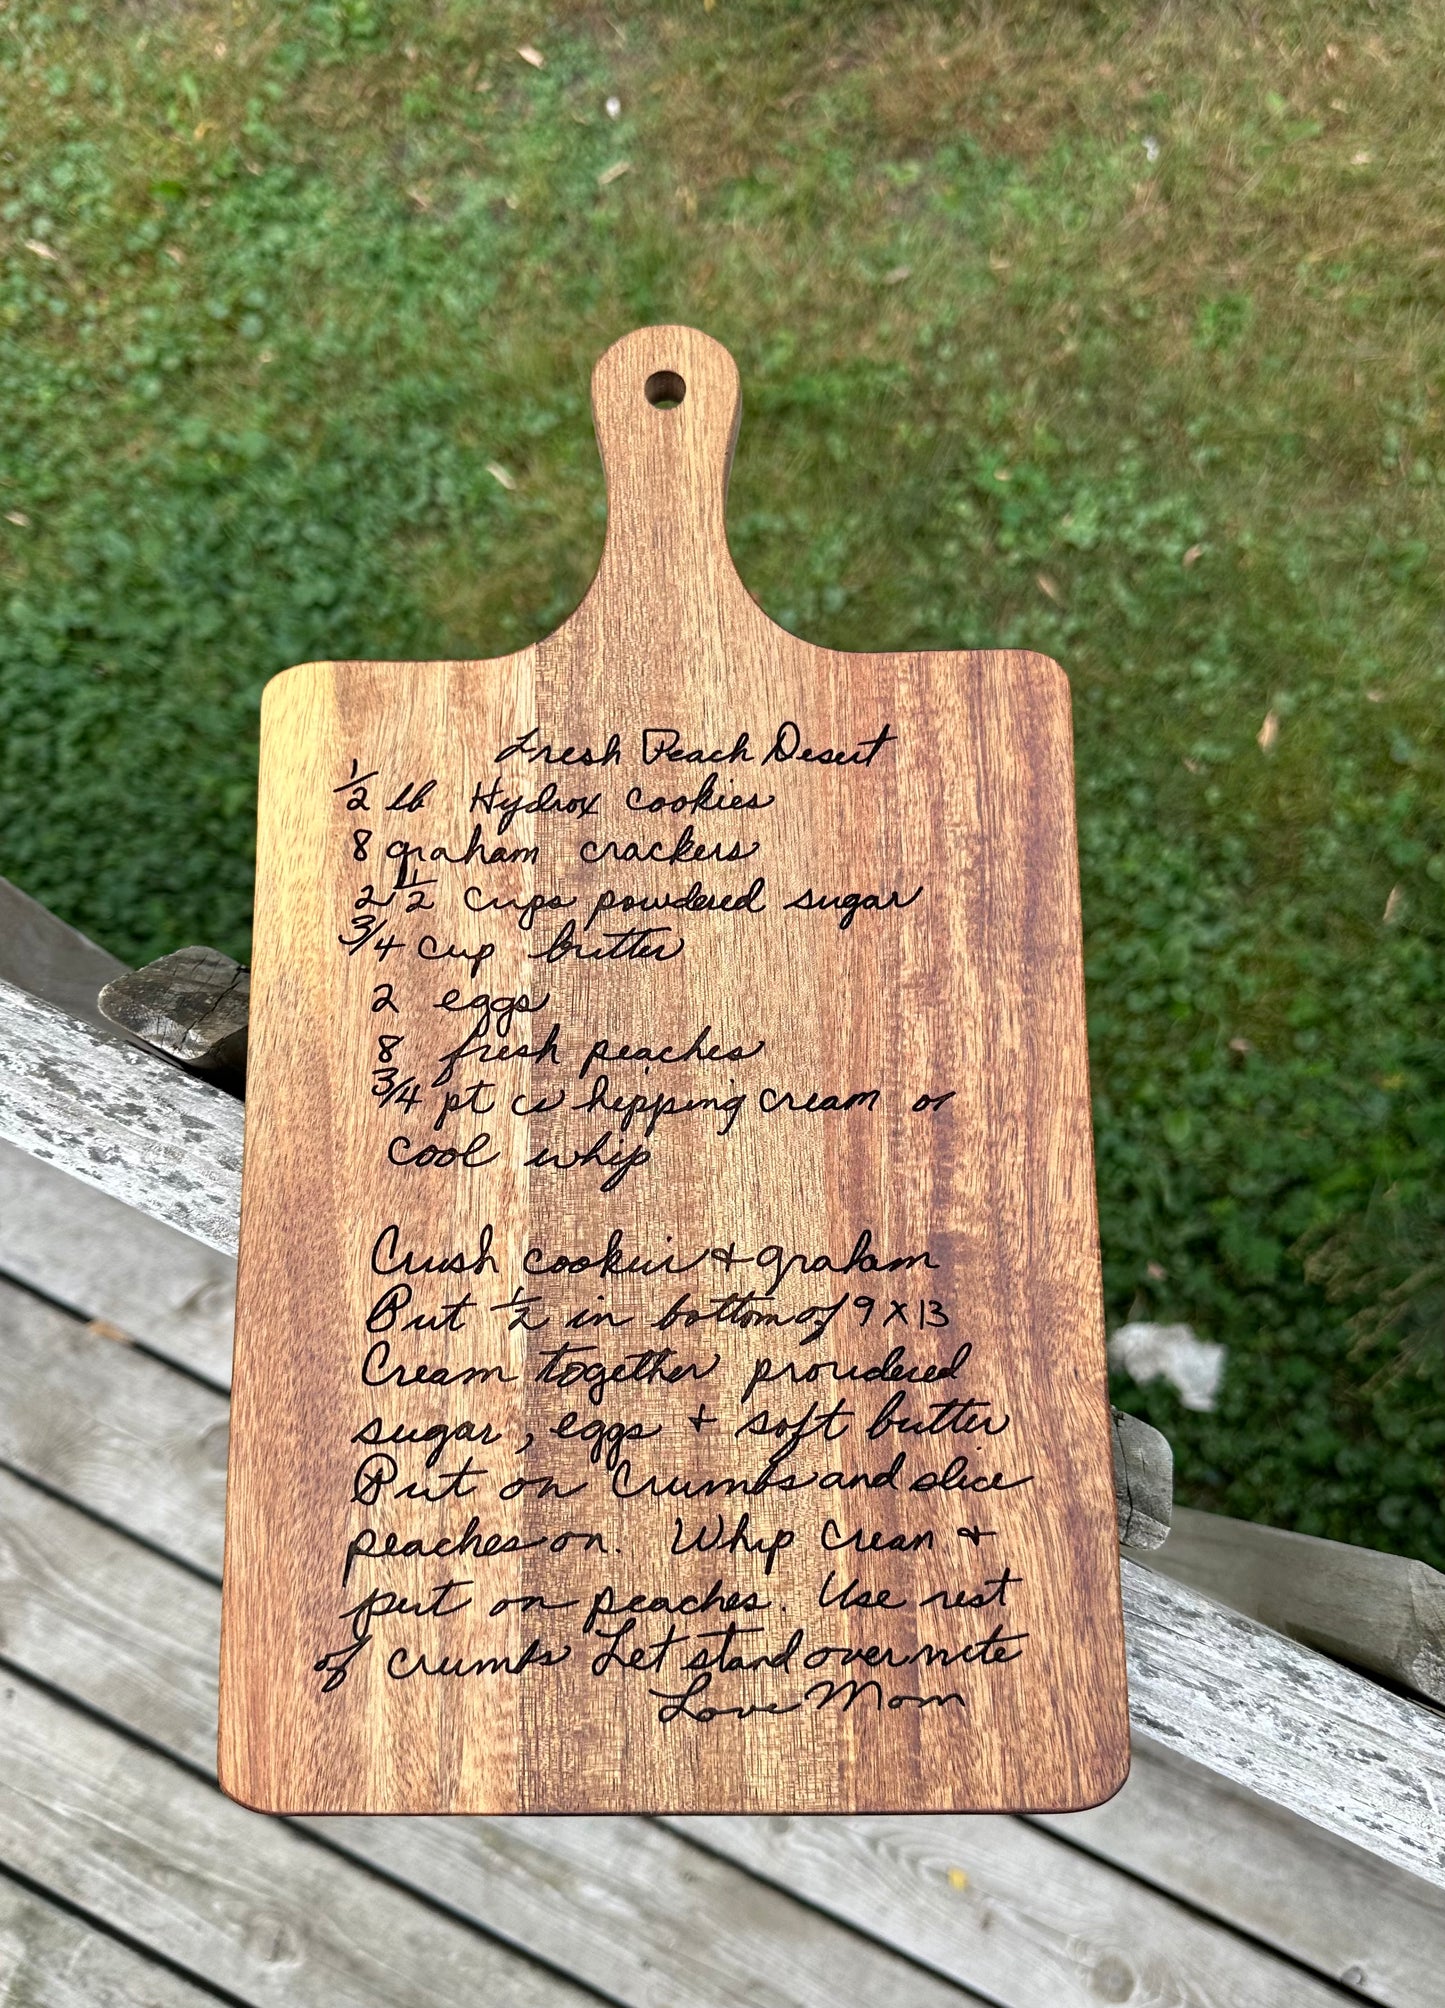 Fresh Peach Desert
1/2 lb Hydrox Cookies
8 graham crackers
2 1/2 Cups powdered sugar
3/4 cup butter
2 eggs
8 fresh peaches
3/4 pt whipping cream or
cool whip
Crush cookies + graham
Put 1/2 in bottom of 9 X 13
Cream together prowdered
sugar, eggs + soft butter
Put on Crumbs and slice
peaches on. Whip Cream +
put on peaches. Use rest
of crumbs Let stand over nite
Love Mom